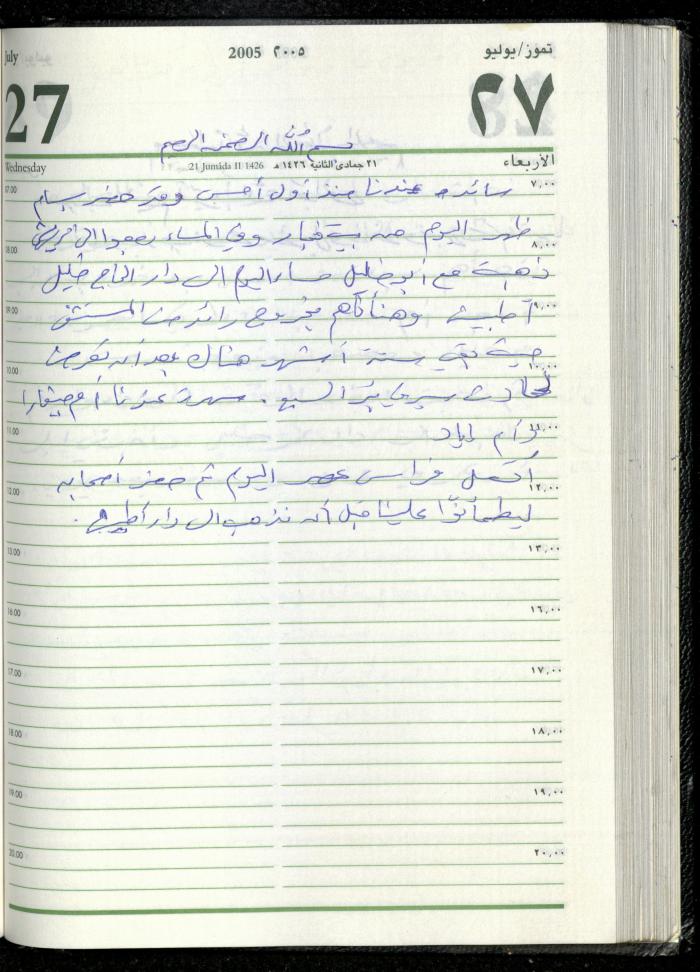 July 2005 ٢٠٠٥ تموز/يوليو
27 ٢٧
بسم الله الرحمن الرحيم
Wednesday 21 Jumáda II 1426 ٢١ جمادى الثانية ١٤٢٦ هـ الأربعاء
07.00 ٧,٠٠
سائده عندنا منذ أول أمس وقد حضر بسام
ظهر اليوم من بيت فجار وفي المساء رجعوا الى
08.00 ٨,٠٠
ذهبت مع أبو خليل مساء اليوم الى دار الحاج خليل
09.00 ٩,٠٠
اطبيش وهنأناهم بخروج رائد من المستشفى
حيث بقي ستة أشهر هناك بعد أن تعرض
10.00 ١٠,٠٠
لحادث سير السبع . سهرت عندنا أم
11.00 ١١,٠٠
وأم اياد
أتصل فراس عصر اليوم ثم حضر أصحابه
12.00 ١٢,٠٠
ليطمأنوا علينا قبل أن نذهب الى دار اطبيش .
13.00 ١٣,٠٠
16.00 ١٦,٠٠
17.00 ١٧,٠٠
18.00 ١٨,٠٠
19.00 ١٩,٠٠
20.00 ٢٠,٠٠